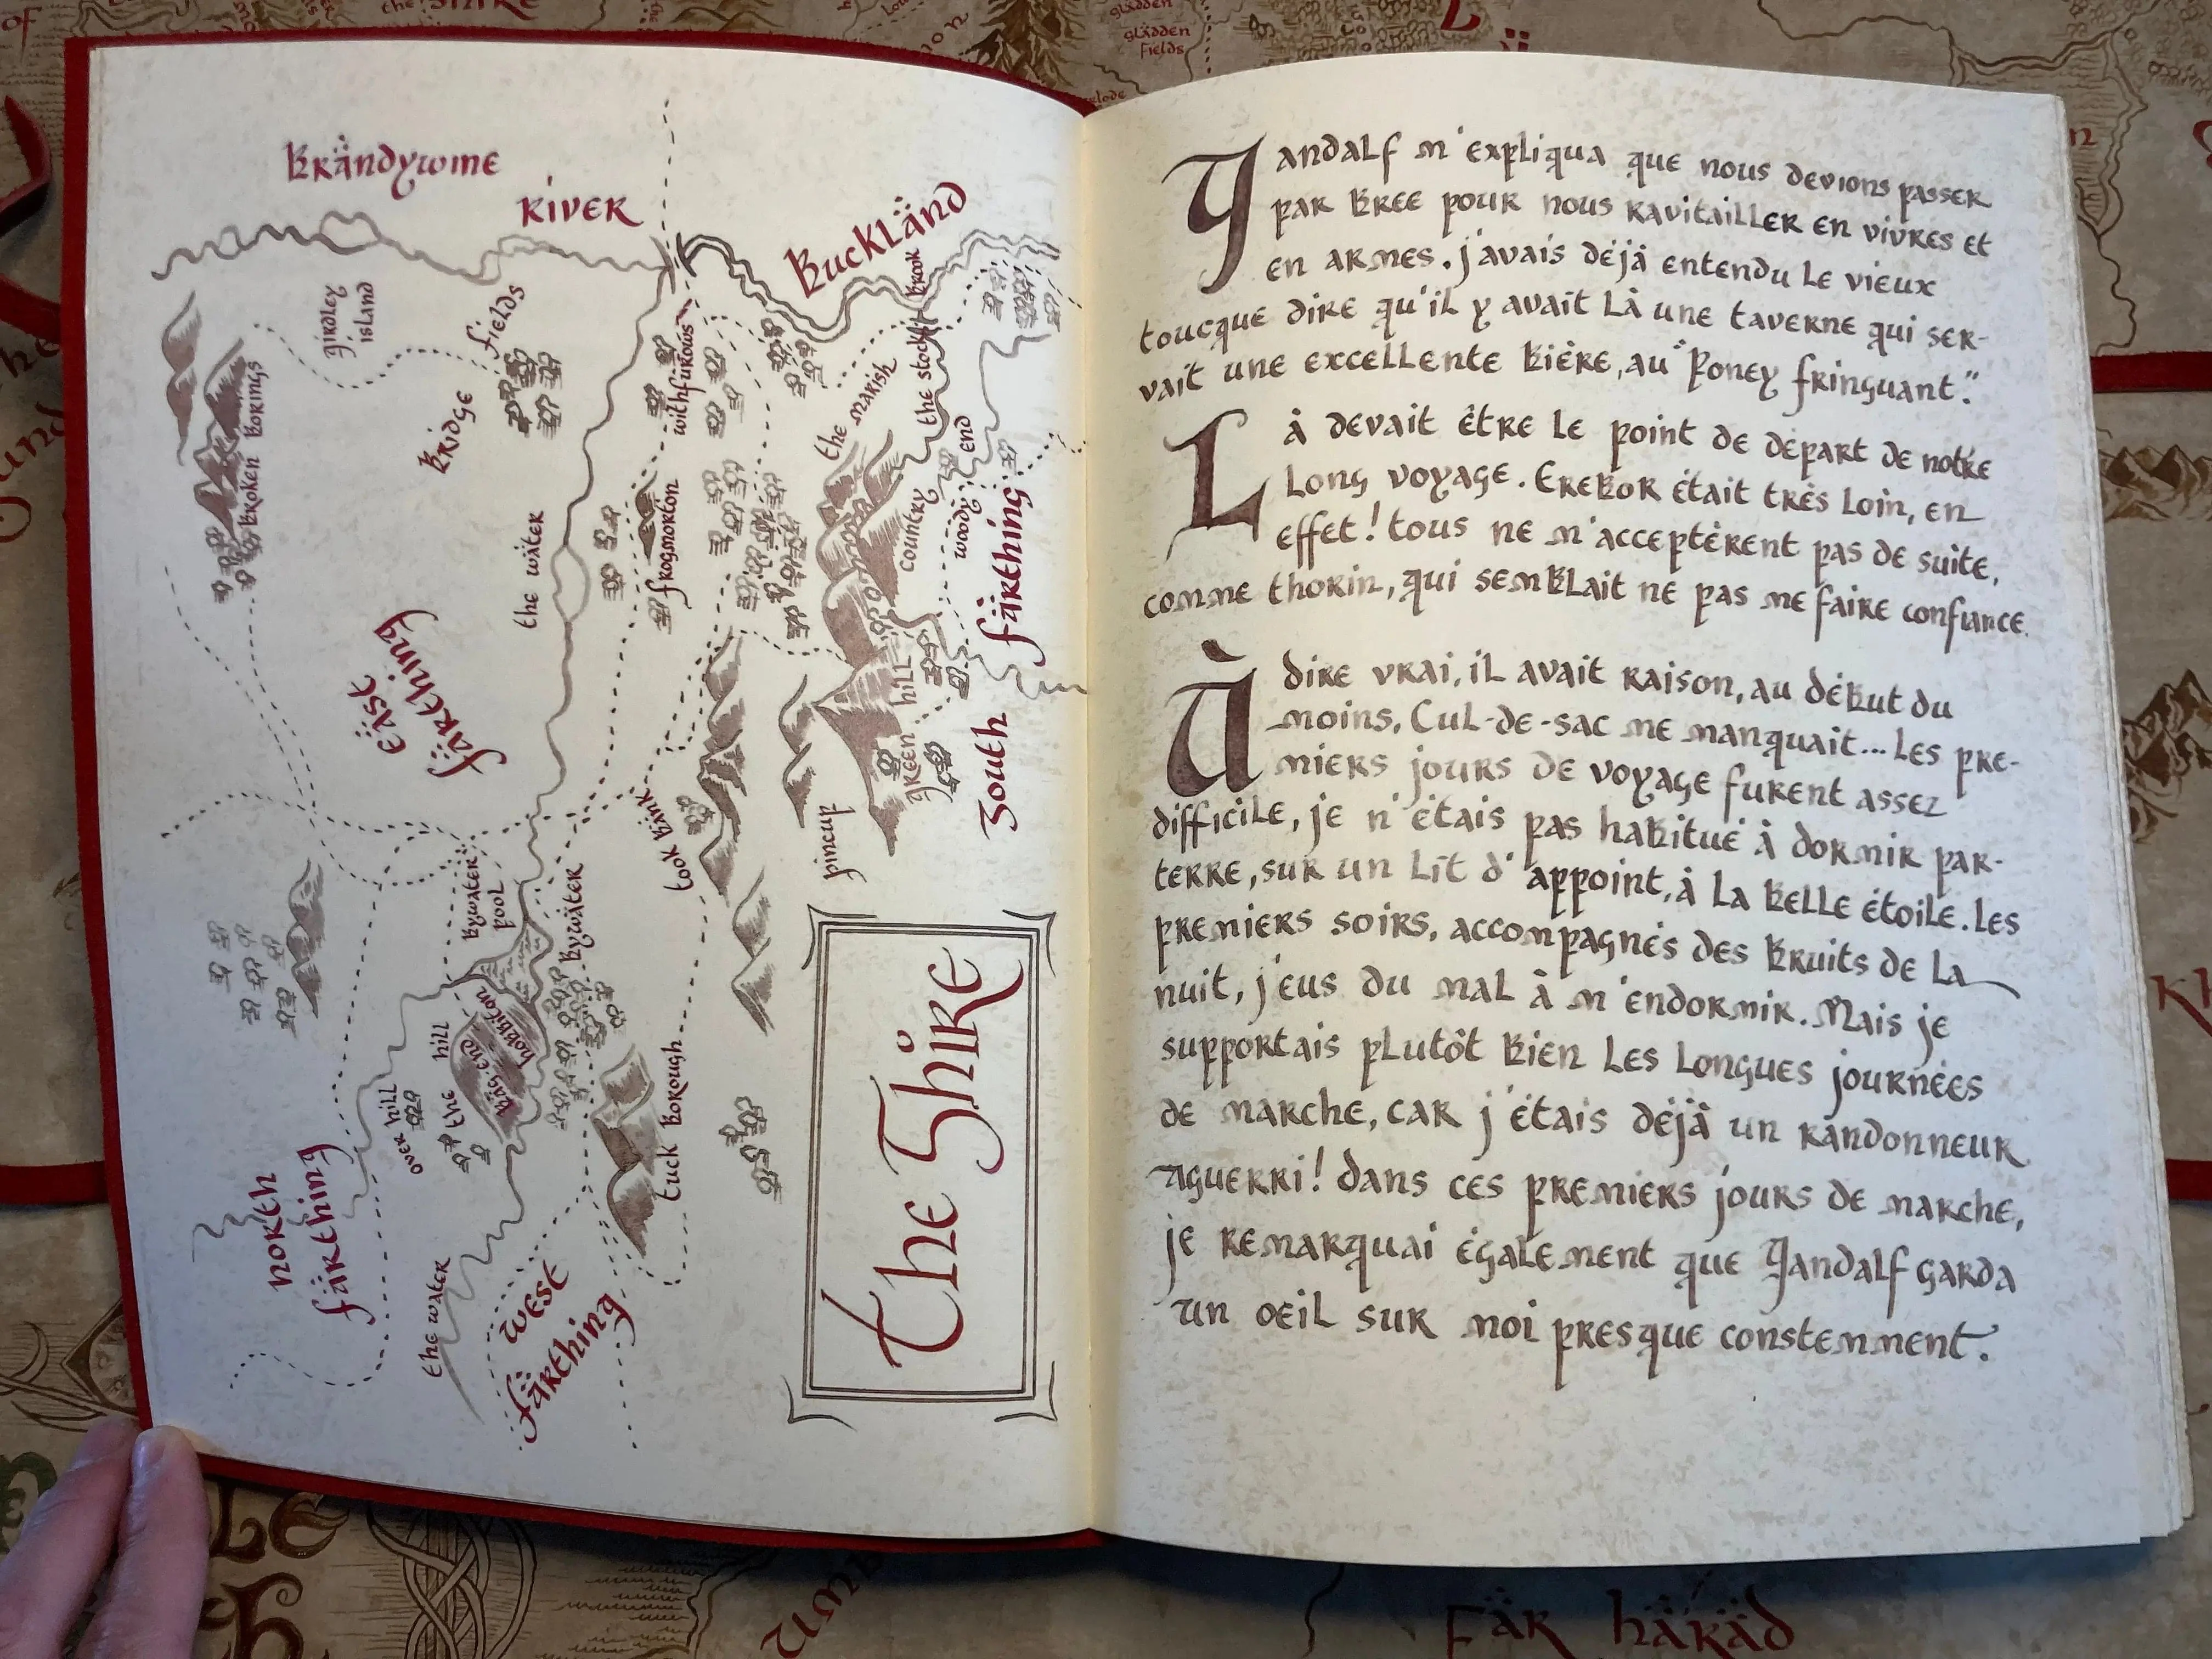 Brändywine
River
Buckländ
Girdley
Island
Bridge Fields
Brook
the stock
the marish
withfurows
Broken Borings
the wäter
frogmorton
country
woody end
Eäst
färthing
South färthing
green hill
pincup
took Bänk
Bywäter
pool
Bywäter
hobbiton
Bäg-end
the hill
over hill
tuck Borough
north
färthing
the wäter
West
färthing
the Shire
Gandalf m'expliqua que nous devions passer
par Bree pour nous ravitailler en vivres et
en armes. j'avais déjà entendu le vieux
toucque dire qu'il y avait là une taverne qui ser-
vait une excellente bière, au "Poney fringuant."
Là devait être le point de départ de notre
long voyage. Erebor était très loin, en
effet! tous ne m'acceptèrent pas de suite,
comme thorin, qui semblait ne pas me faire confiance.
À dire vrai, il avait raison, au début du
moins. Cul-de-sac me manquait... Les pre-
miers jours de voyage furent assez
difficile, je n'étais pas habitué à dormir par-
terre, sur un lit d'appoint, à la belle étoile. Les
premiers soirs, accompagnés des bruits de la
nuit, j'eus du mal à m'endormir. Mais je
supportais plutôt bien les longues journées
de marche, car j'étais déjà un randonneur
aguerri! dans ces premiers jours de marche,
je remarquai également que Gandalf garda
un oeil sur moi presque constemment.
the Shire
glädden
fields
Fär Häräd